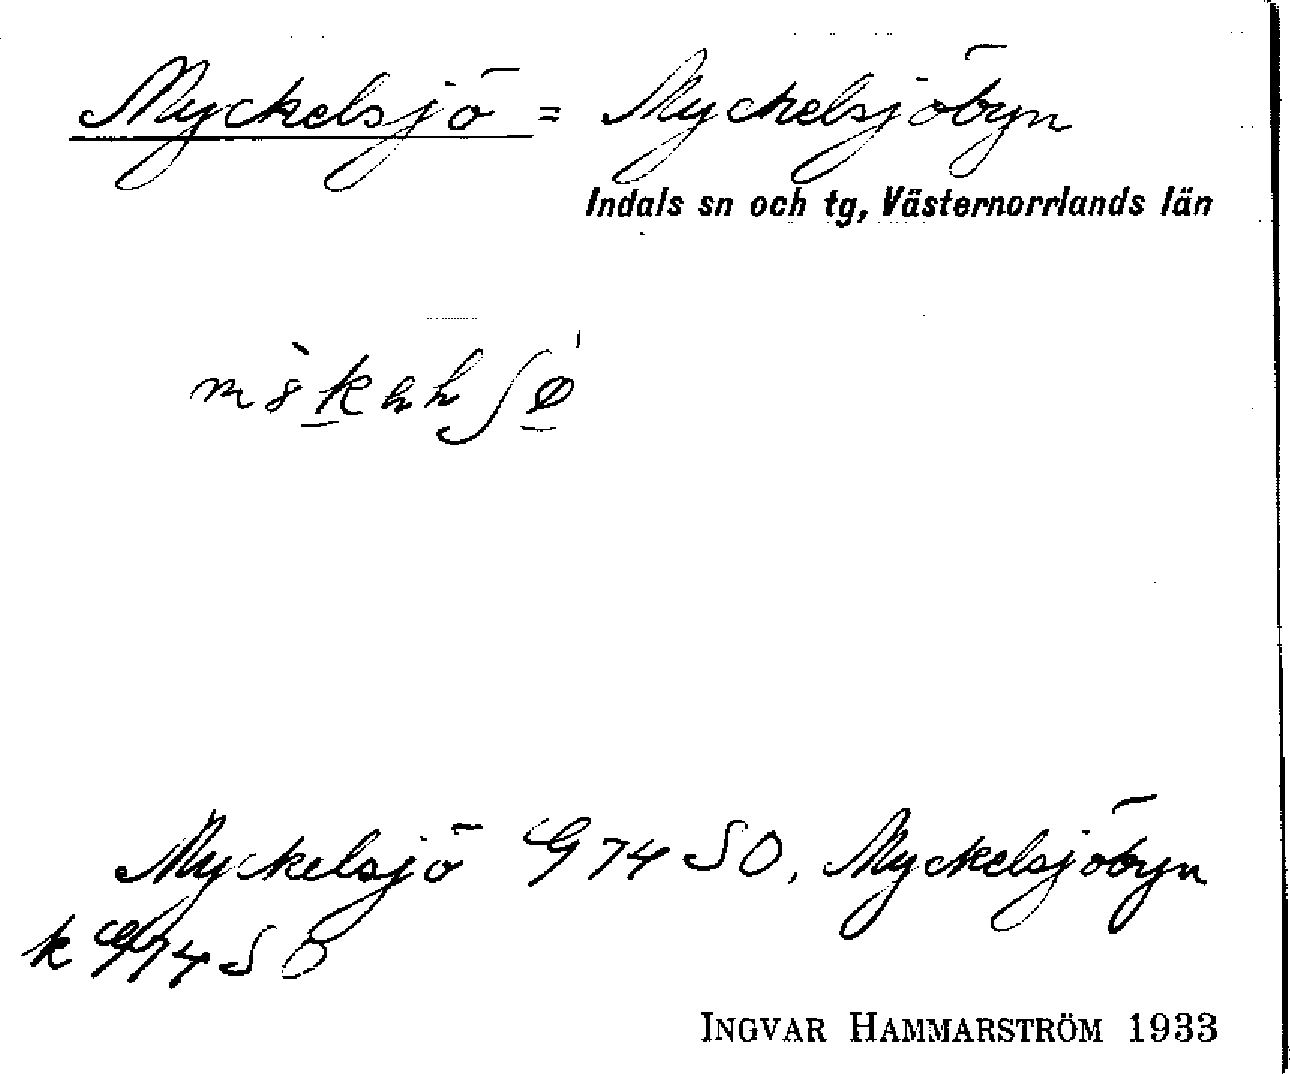 Myckelsjö = Myckelsjöbyn
Indals sn och tg, Västernorrlands län
Myckelsjö G 74 SO, Myckelsjöbyn
k G 74 SO
INGVAR HAMMARSTRÖM 1933